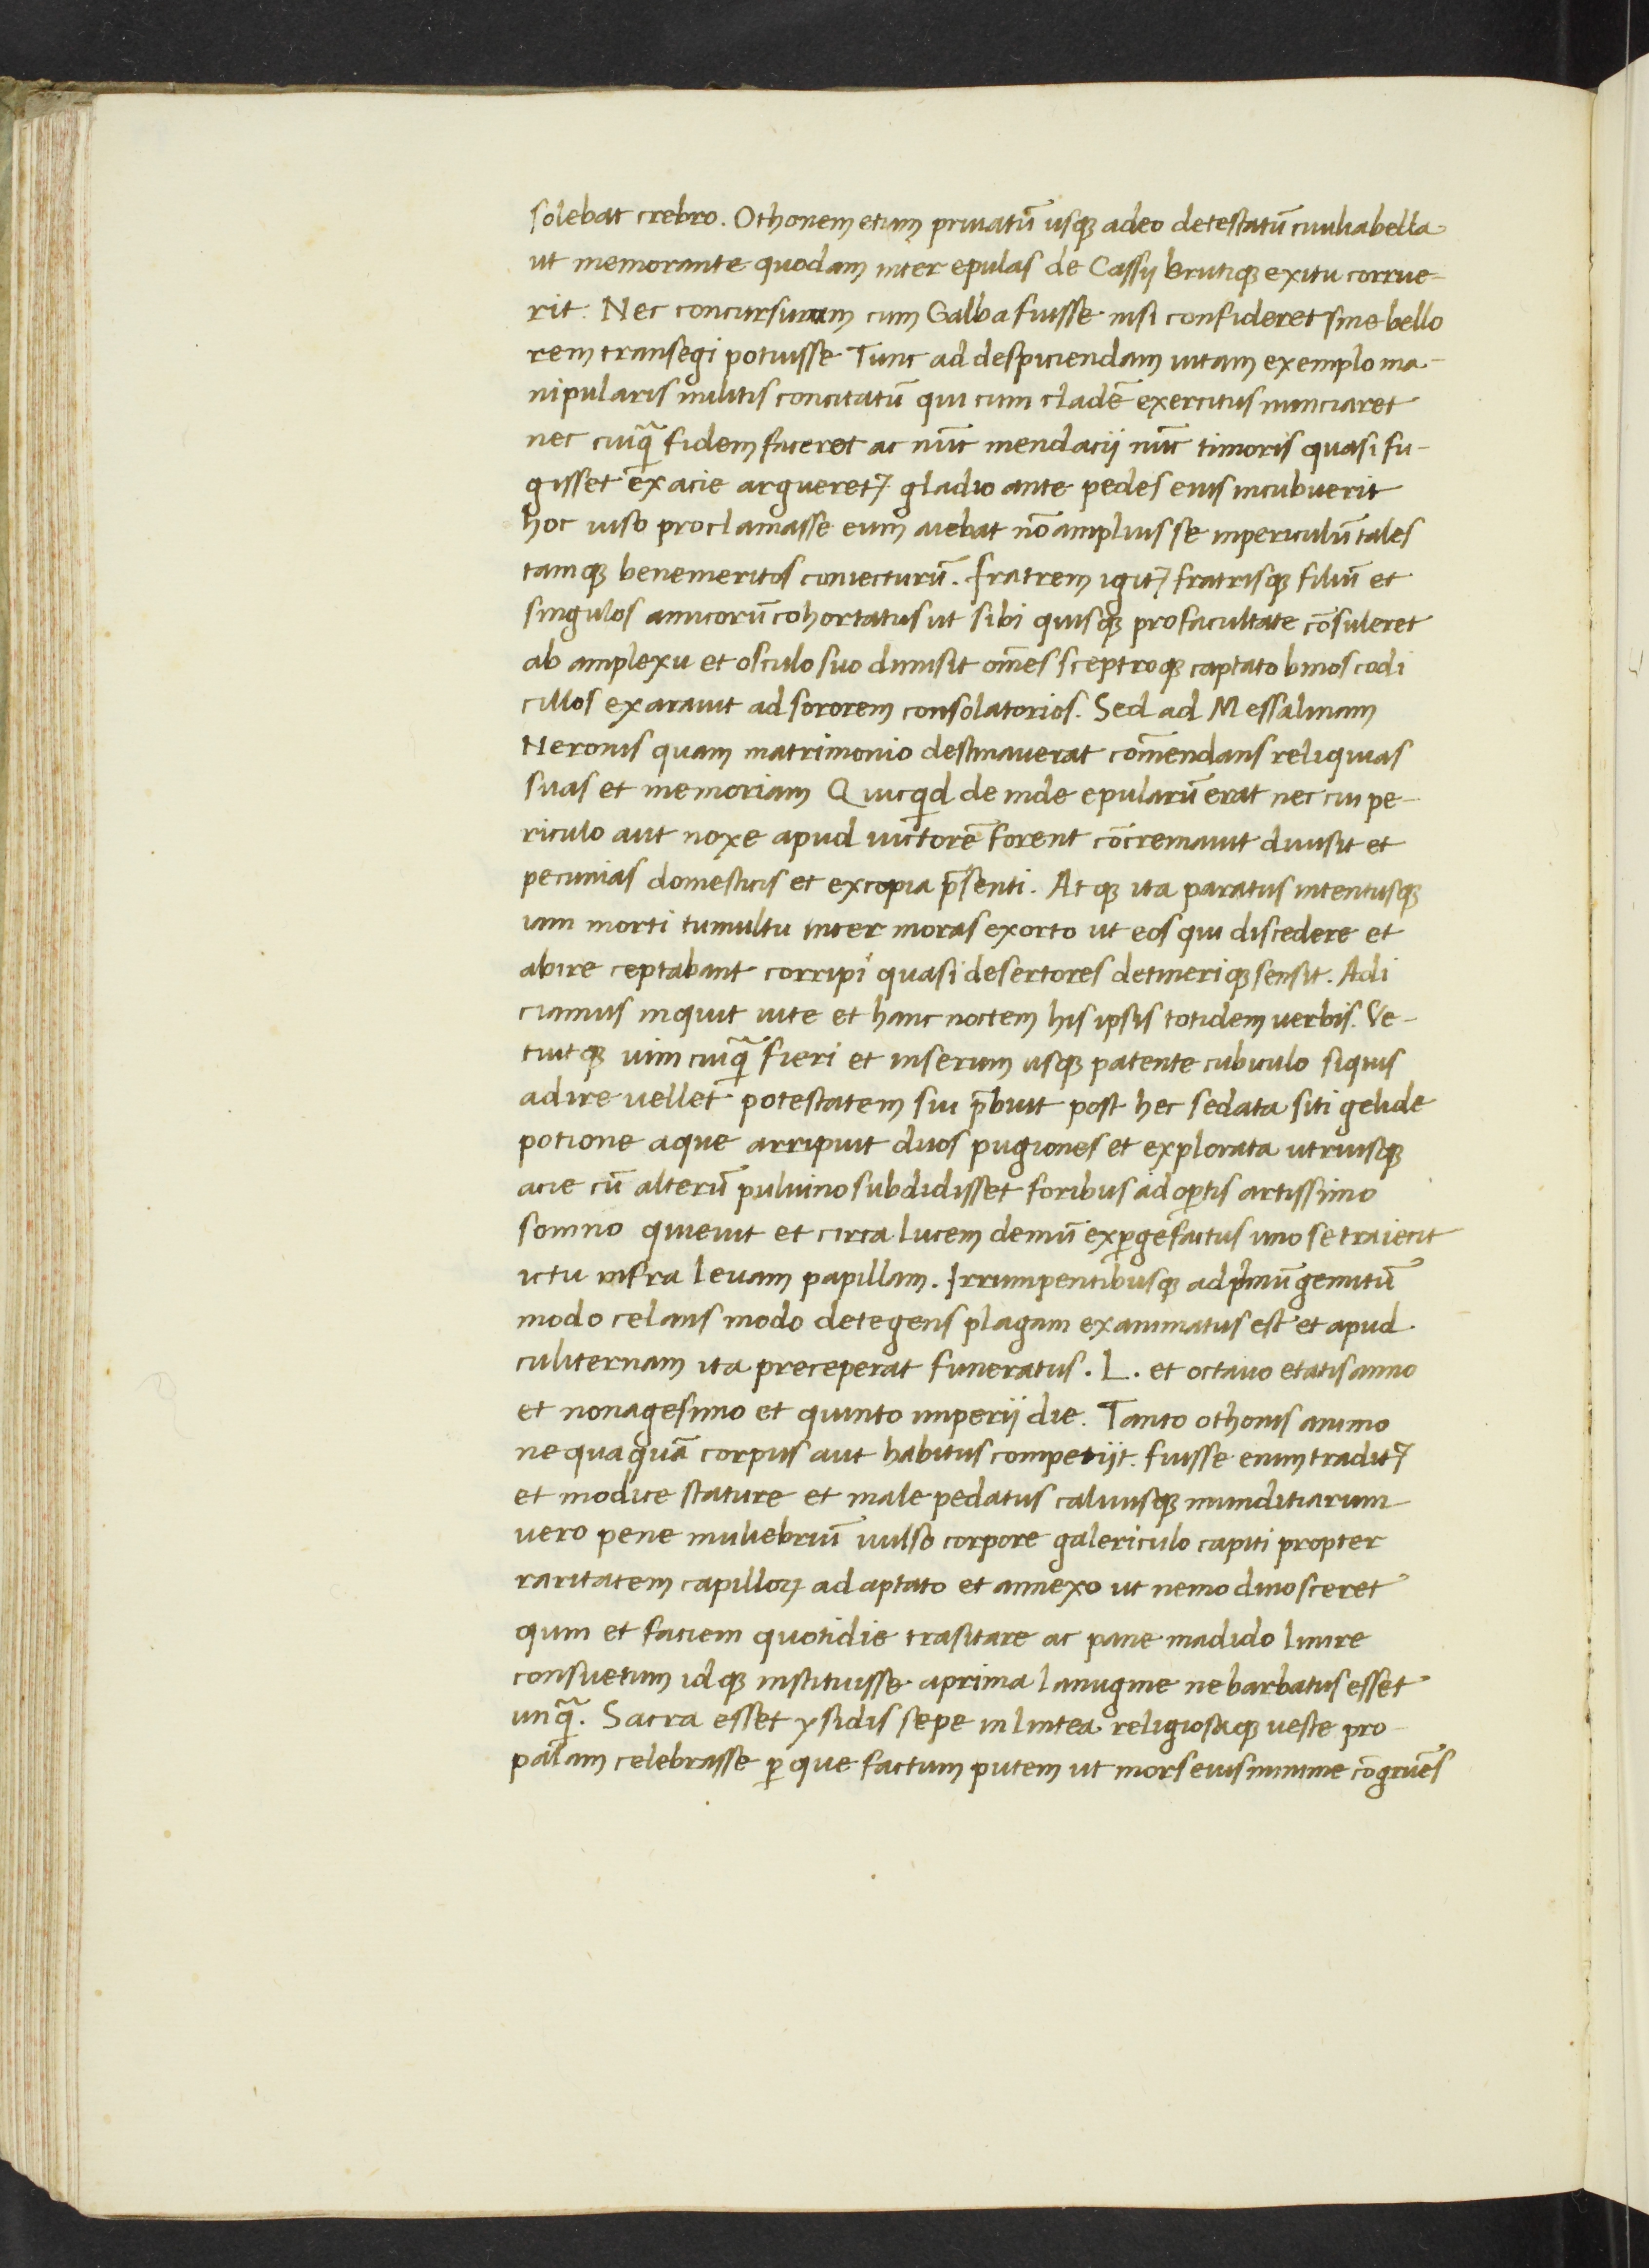 solebat crebro. Othonem etiam priuatū usqꝫ adeo detestatū ciuilia bella
ut memorante quodam inter epulas de Cassij brutiqꝫ exitu corrue-
rit. Nec concursurum cum Galba fuisse nisi confideret sine bello
rem transegi potuisse Tunc ad despiciendam uitam exemplo ma-
nipularis militis concitatū qui cum cladē exercitus nunciaret
nec cuiq̄ fidem faceret ac nūc mendacij nūc timoris quasi fu-
gisset ex acie argueret⁊ gladio ante pedes eius incubuerit
hoc uiso proclamasse eum aiebat nō amplius se in periculū tales
tamqꝫ benemeritos coniecturū. Fratrem igit⁊ fratrisqꝫ filiū et
singulos amicorū cohortatus ut sibi quisqꝫ pro facultate cōsuleret
ab amplexu et osculo suo dimisit om̄es sceptroqꝫ captato binos codi
cillos exarauit ad sororem consolatorios. Sed ad Messalinam
Neronis quam matrimonio destinauerat com̄endans reliquias
suas et memoriam Quicq̄d deinde epularū erat nec cui pe-
riculo aut noxe apud uictorē forent cōcremauit diuisit et
pecunias domesticis et ex copia p̄senti. Atqꝫ ita paratus intentusqꝫ
iam morti tumultu inter moras exorto ut eos qui discedere et
abire ceptabant corripi quasi desertores detineriqꝫ sensit. Adi
ciamus inquit uite et hanc noctem his ipsis totidem uerbis. Ve-
tuitqꝫ uim cuiq̄ fieri et in serum usqꝫ patente cubiculo siquis
adire uellet potestatem sui p̄buit post hec sedata siti gelide
potione aque arripuit duos pugiones et explorata utriusqꝫ
acie cū alterū puluino subdidisset foribus adoꝑtis artissimo
somno quieuit et circa lucem demū exꝑgefactus uno se traiecit
ictu infra leuam papillam. Irrumpentibusqꝫ ad pͥmū gemitū
modo celans modo detegens plagam exanimatus est et apud
culiternam ita preceperat funeratus. L. et octauo etatis anno
et nonagesimo et quinto imperij die. Tanto othonis animo
nequaquā corpus aut habitus competijt. fuisse enim tradit⁊
et modice stature et male pedatus caluusqꝫ munditiarum
uero pene muliebriū uulso corpore galericulo capiti propter
raritatem capilloꝝ adaptato et annexo ut nemo dinosceret
quin et faciem quotidie trasitare ac pane madido linire
consuetum idqꝫ instituisse a prima lanugine ne barbatus esset
unq̄. Sacra esset ysidis sepe in lintea religiosaqꝫ ueste pro-
palam celebrasse ꝑ que factum putem ut mors eius minime cōgruēs